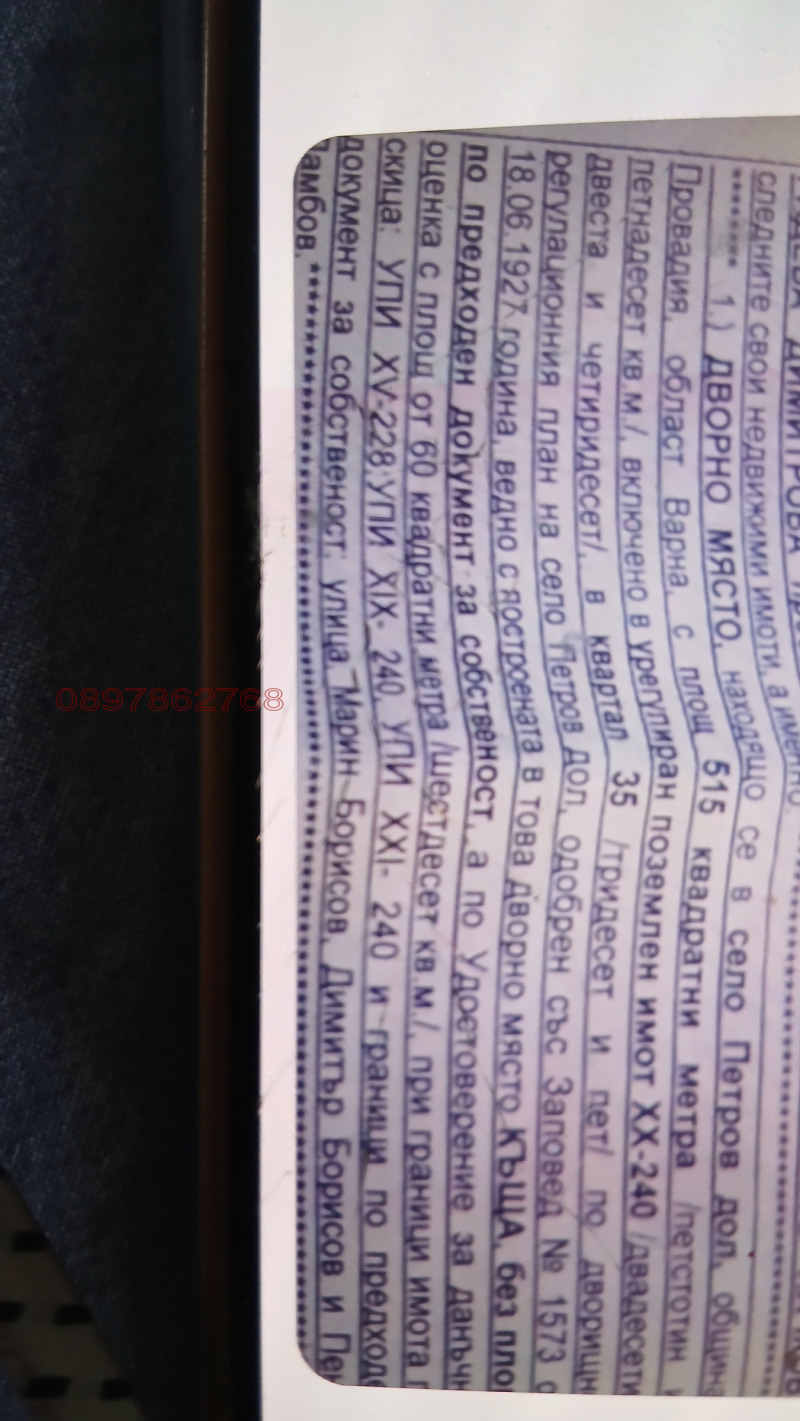 следните свои недвижими имоти, а именно:
******* 1.) ДВОРНО МЯСТО, находящо се в село Петров дол, община
Провадия, област Варна, с площ 515 квадратни метра /петстотин и
петнадесет кв.м./, включено в урегулиран поземлен имот XX-240 /двадесети
двеста и четиридесет/, в квартал 35 /тридесет и пет/ по дворищн
регулационния план на село Петров дол, одобрен със Заповед № 1573 о
18.06.1927 година, ведно с построената в това дворно място КЪЩА, без пло
по предходен документ за собственост, а по Удостоверение за данъчн
оценка с площ от 60 квадратни метра /шестдесет кв.м./, при граници имота
скица: УПИ XV-228, УПИ XIX- 240, УПИ XXI- 240 и граници по предход
документ за собственост: улица, Марин Борисов, Димитър Борисов и Пе
Ламбов.
0897862768